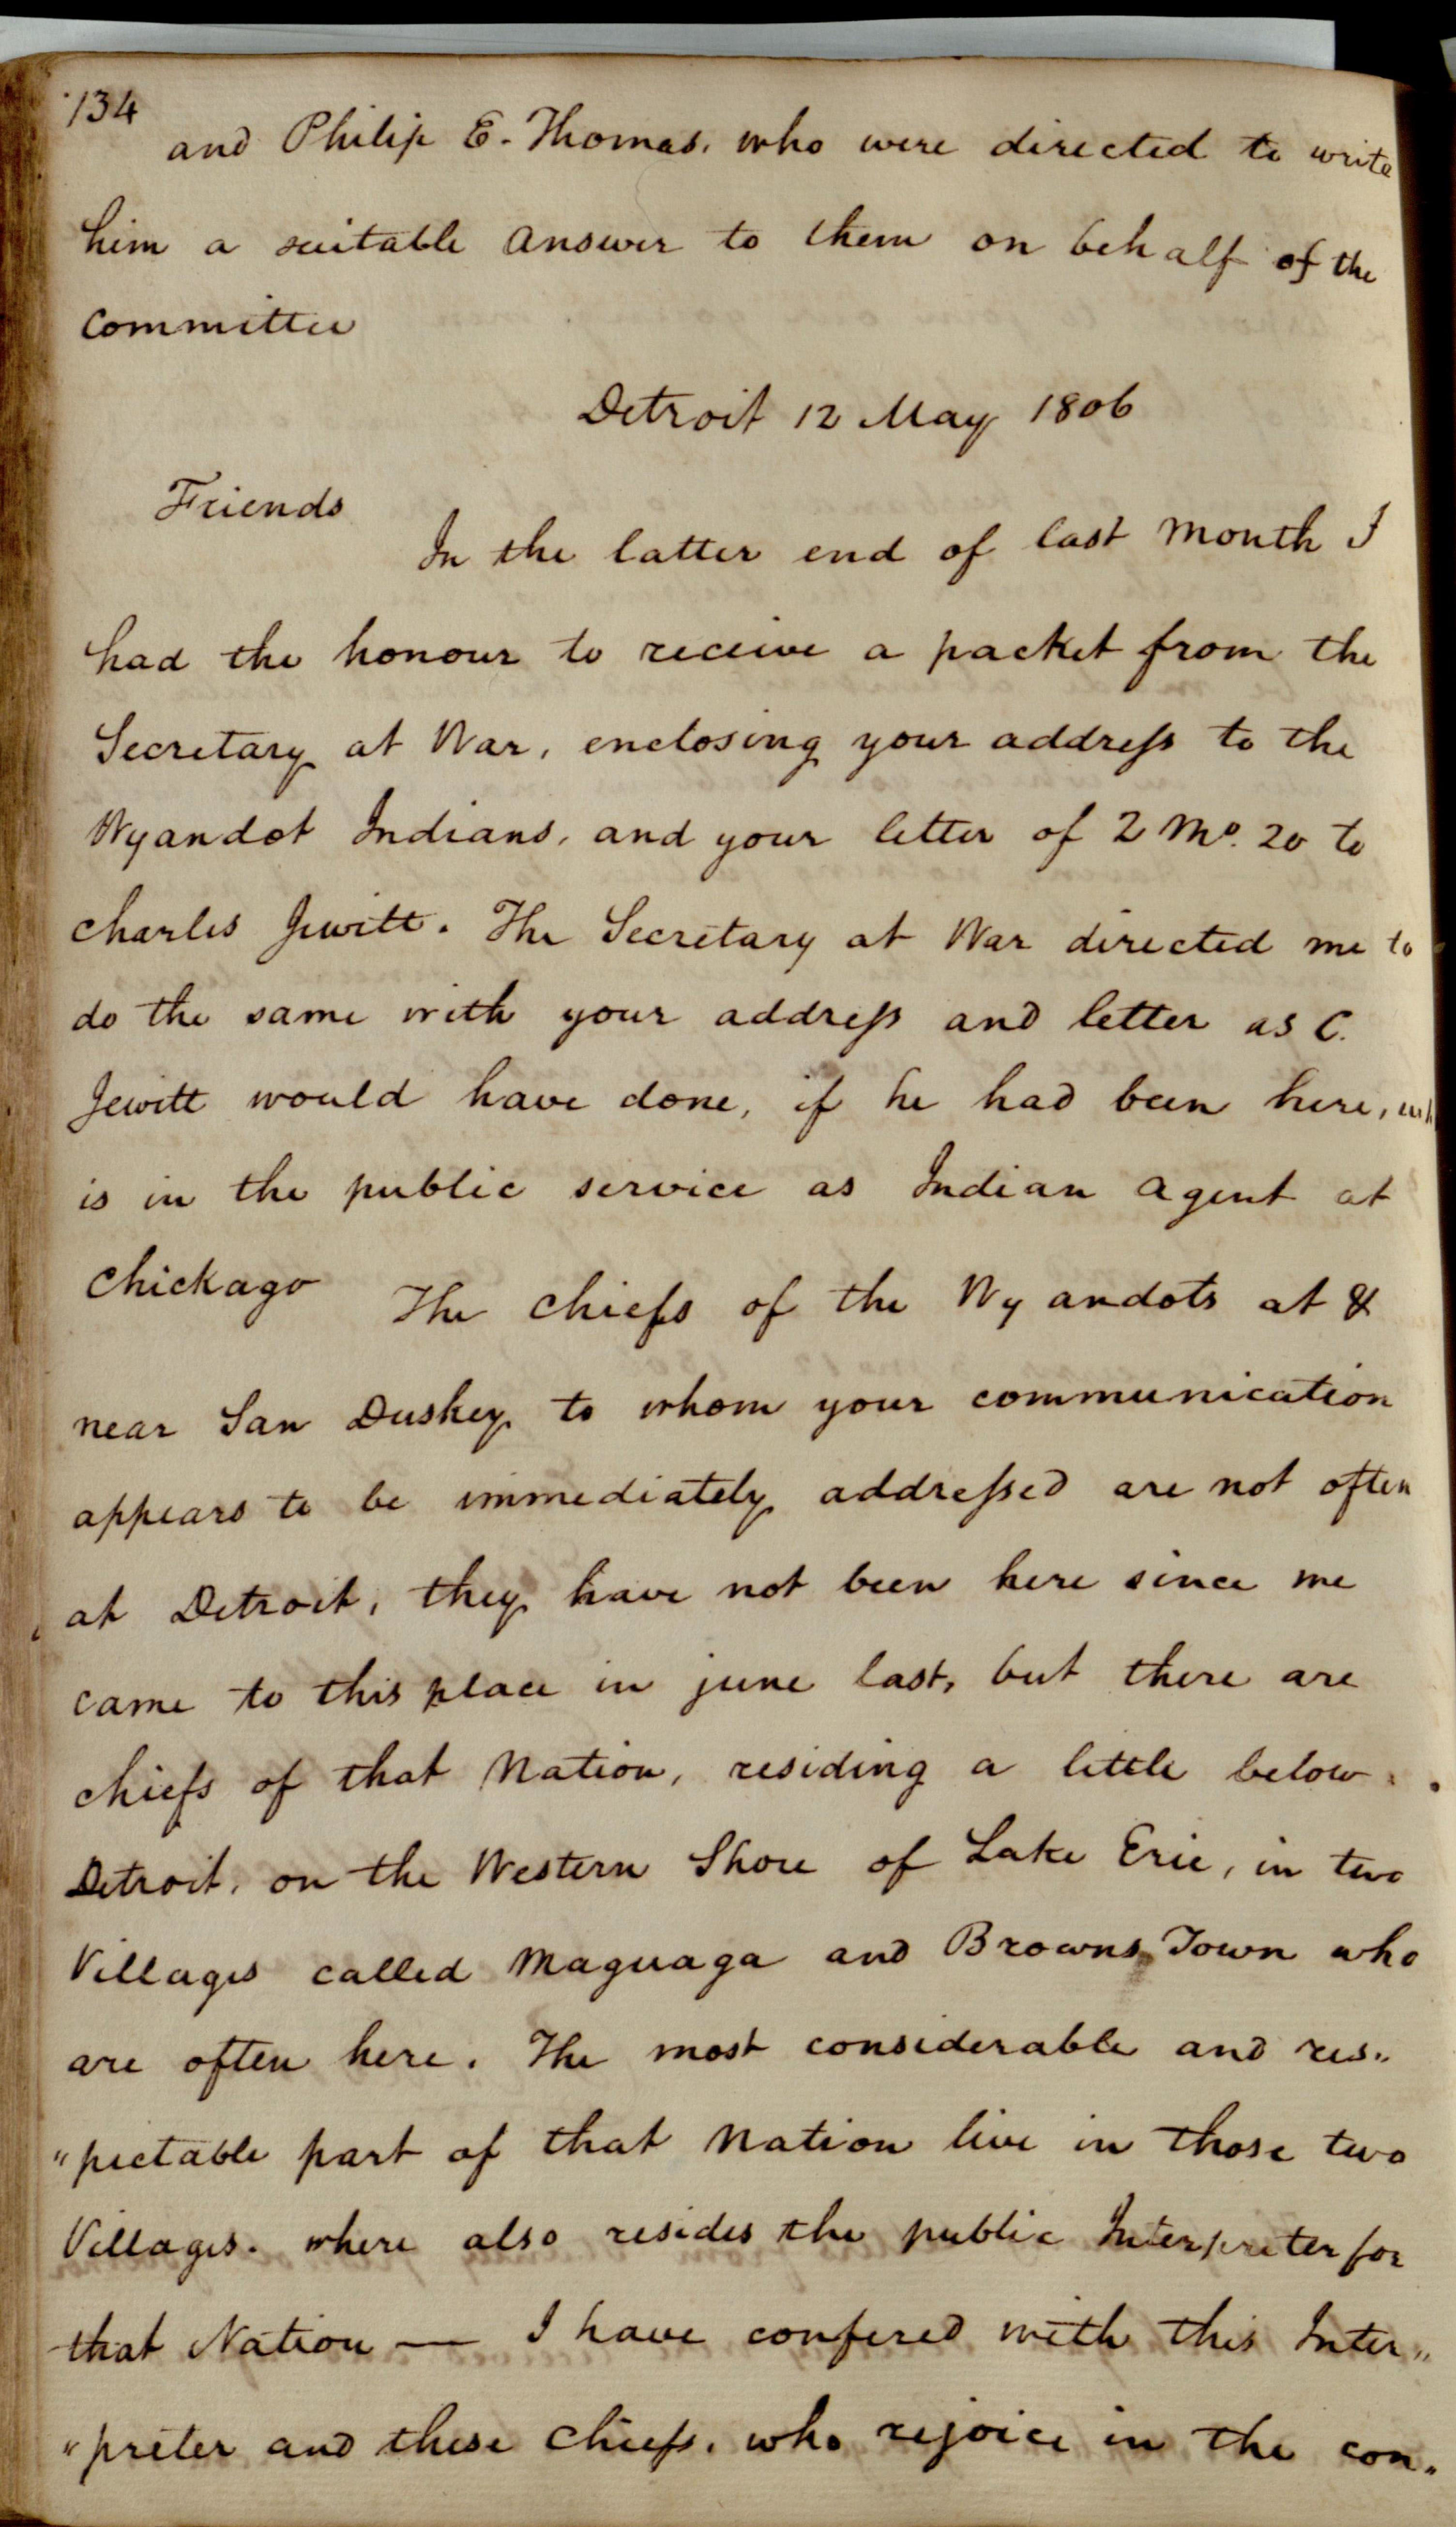 134
and Philip E. Thomas, who were directed to write
him a suitable answer to them on behalf of the
Committee
Detroit 12 May 1806
Friends
In the latter end of last Month I
had the honour to receive a packet from the
Secretary at War, enclosing your addreſs to the
Wyandot Indians, and your letter of 2 Mo. 20 to
Charles Jewitt. The Secretary at War directed me to
do the same with your addreſs and letter as C.
Jewitt would have done, if he had been here,
is in the public service as Indian Agent at
Chickago
The Chiefs of the Wyandots at &
near San Duskey to whom your communication
appears to be immediately addreſsed are not often
at Detroit, they have not been here since me
came to this place in june last, but there are
chiefs of that Nation, residing a little below
Detroit, on the Western Shore of Lake Erie, in two
Villages called Maguaga and Browns Town who
are often here. The most considerable and res"
"pectable part of that Nation live in those two
Villages. where also resides the public Interpreter for
that Nation — I have confered with this Inter"
"preter and these Chiefs, who rejoice in the con"